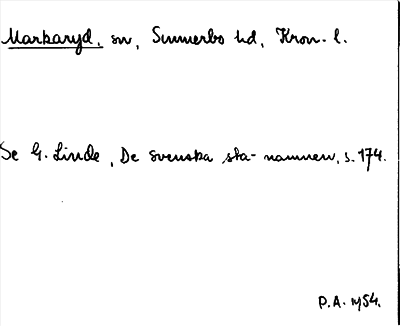 Markaryd, sn, Sunnerbo hd, Kron. l.
Se G. Linde, De svenska sta- namnen, s. 174.
P.A. 1954.